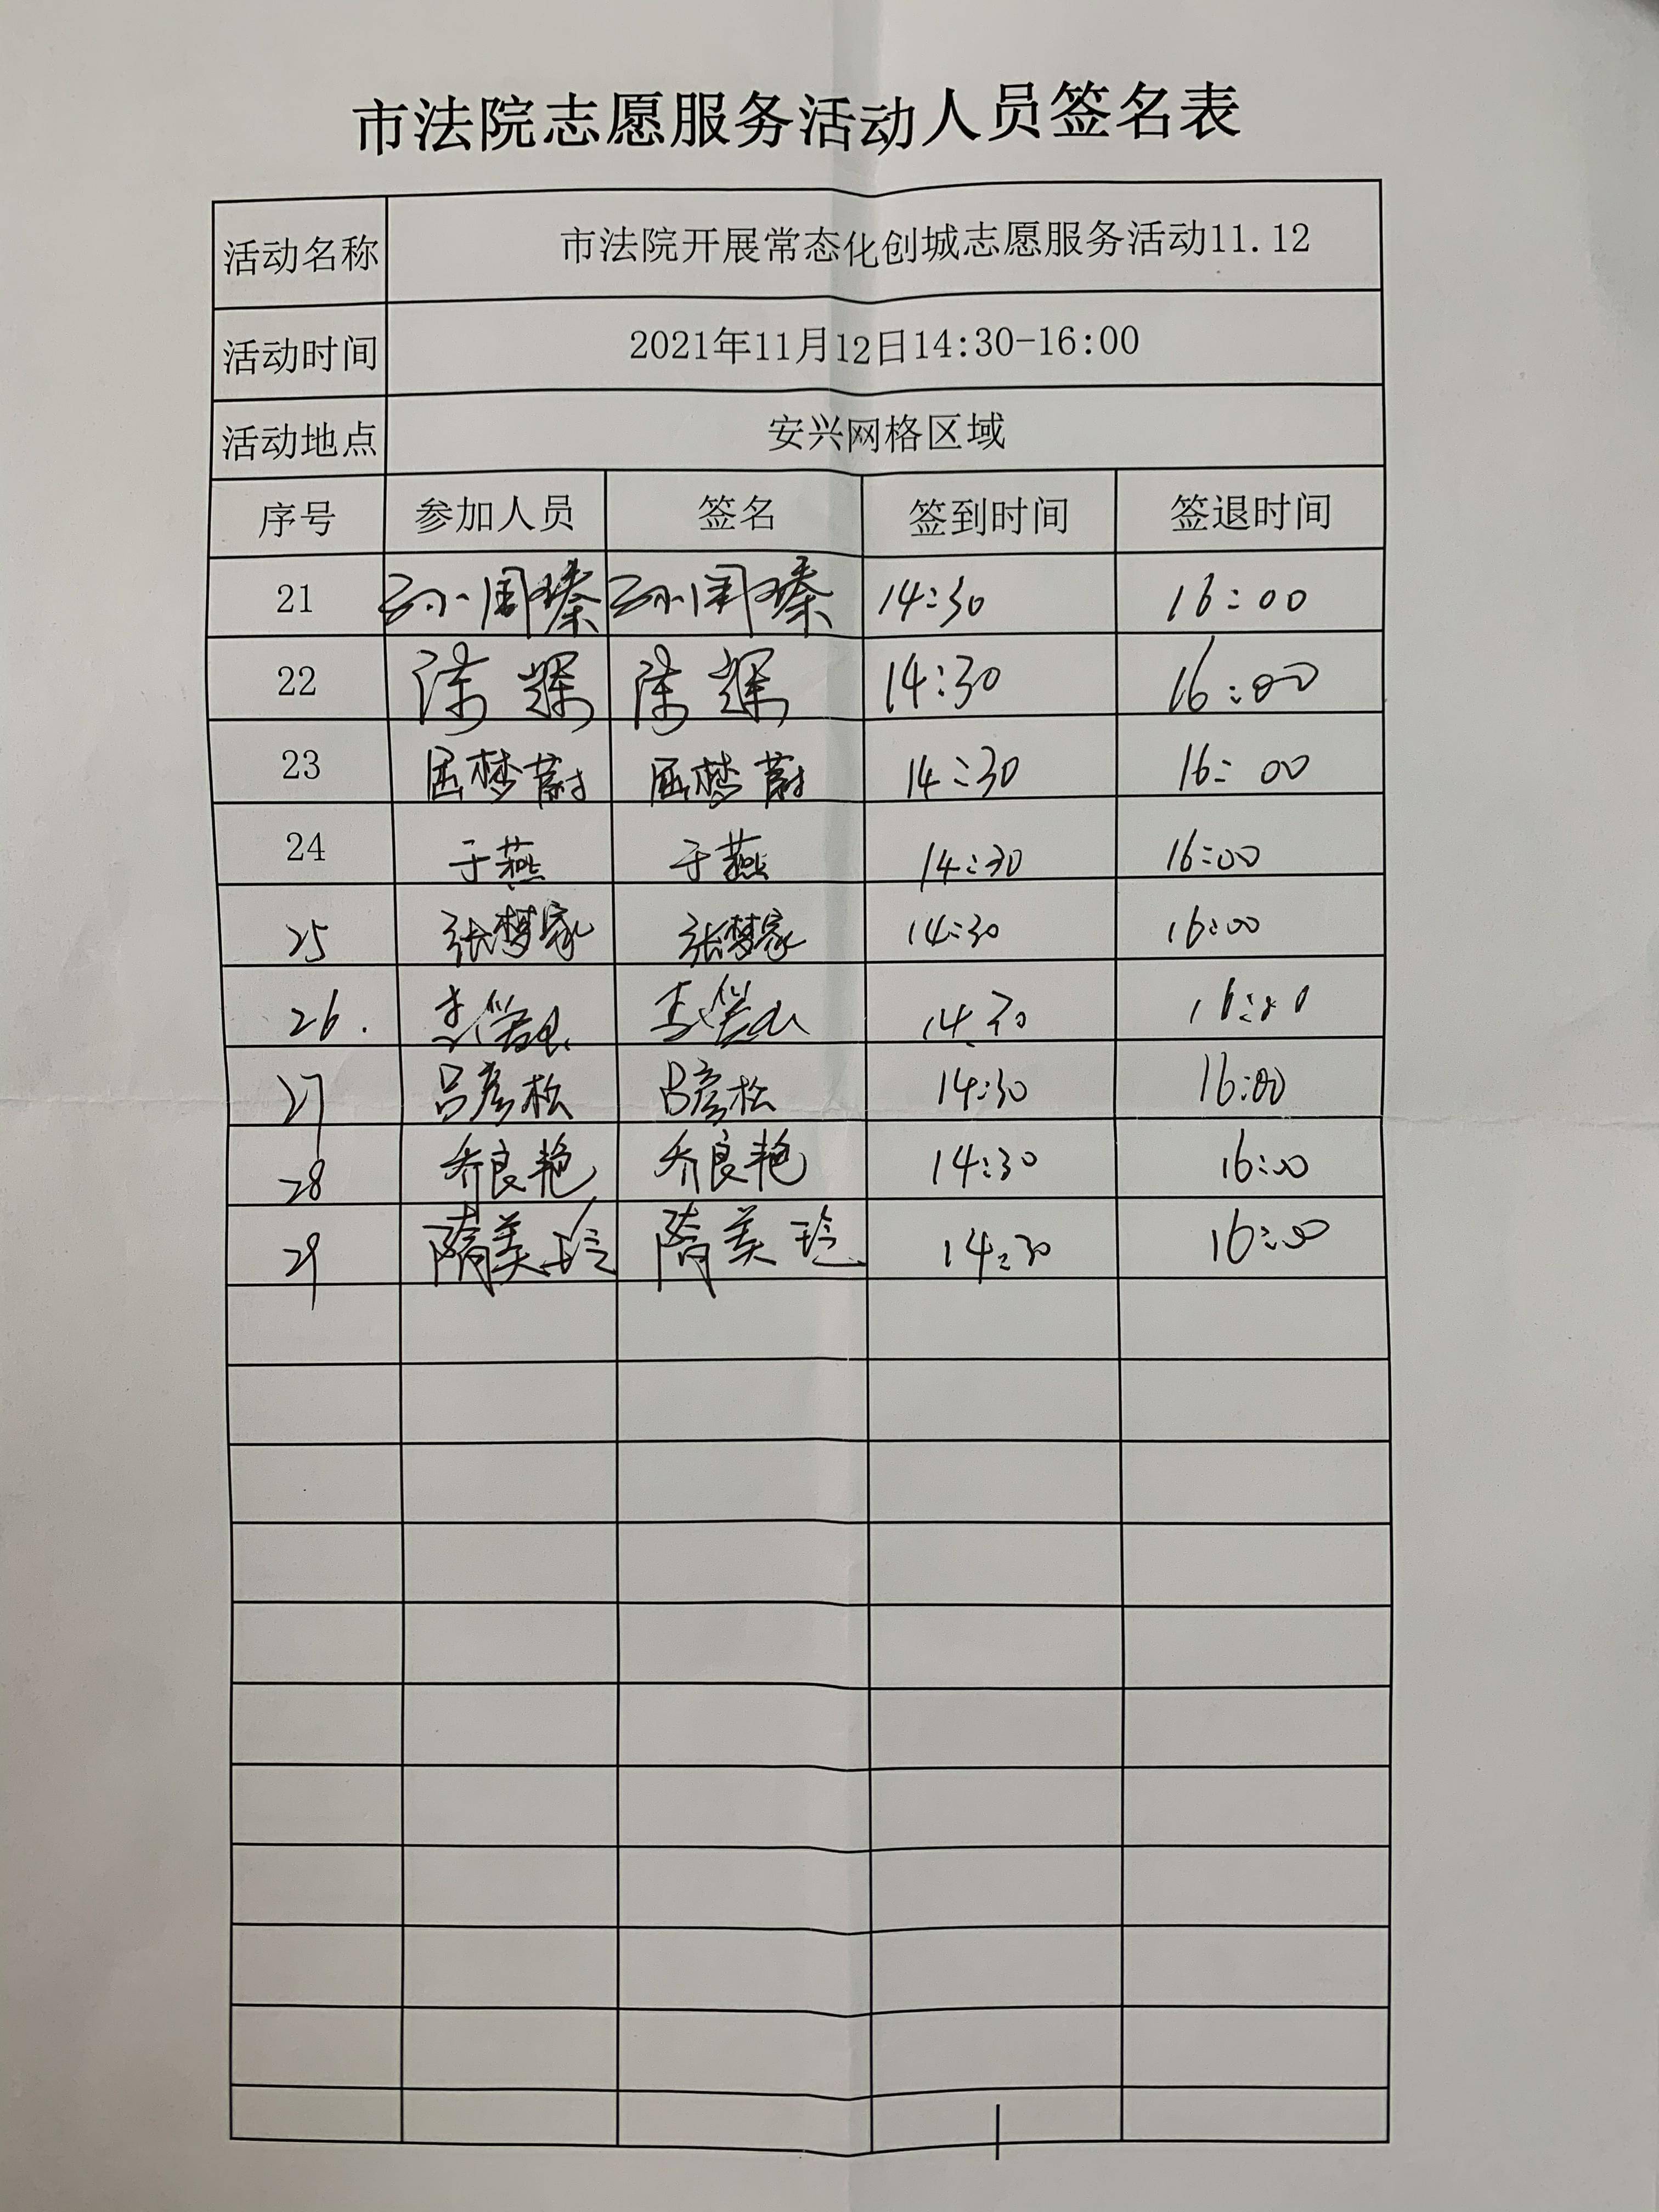 市法院志愿服务活动人员签名表
活动名称 市法院开展常态化创城志愿服务活动11.12
活动时间 2021年11月12日14:30-16:00
活动地点 安兴网格区域
序号 参加人员 签名 签到时间 签退时间
21 孙周臻 孙周臻 14:30 16:00
22 陈辉 陈辉 14:30 16:00
23 屈梦蔚 屈梦蔚 14:30 16:00
24 于燕 于燕 14:30 16:00
25 张梦家 张梦家 14:30 16:00
26. 14:30 16:00
27 吕彦松 吕彦松 14:30 16:00
28 乔良艳 乔良艳 14:30 16:00
29 隋美玲 隋美玲 14:30 16:00